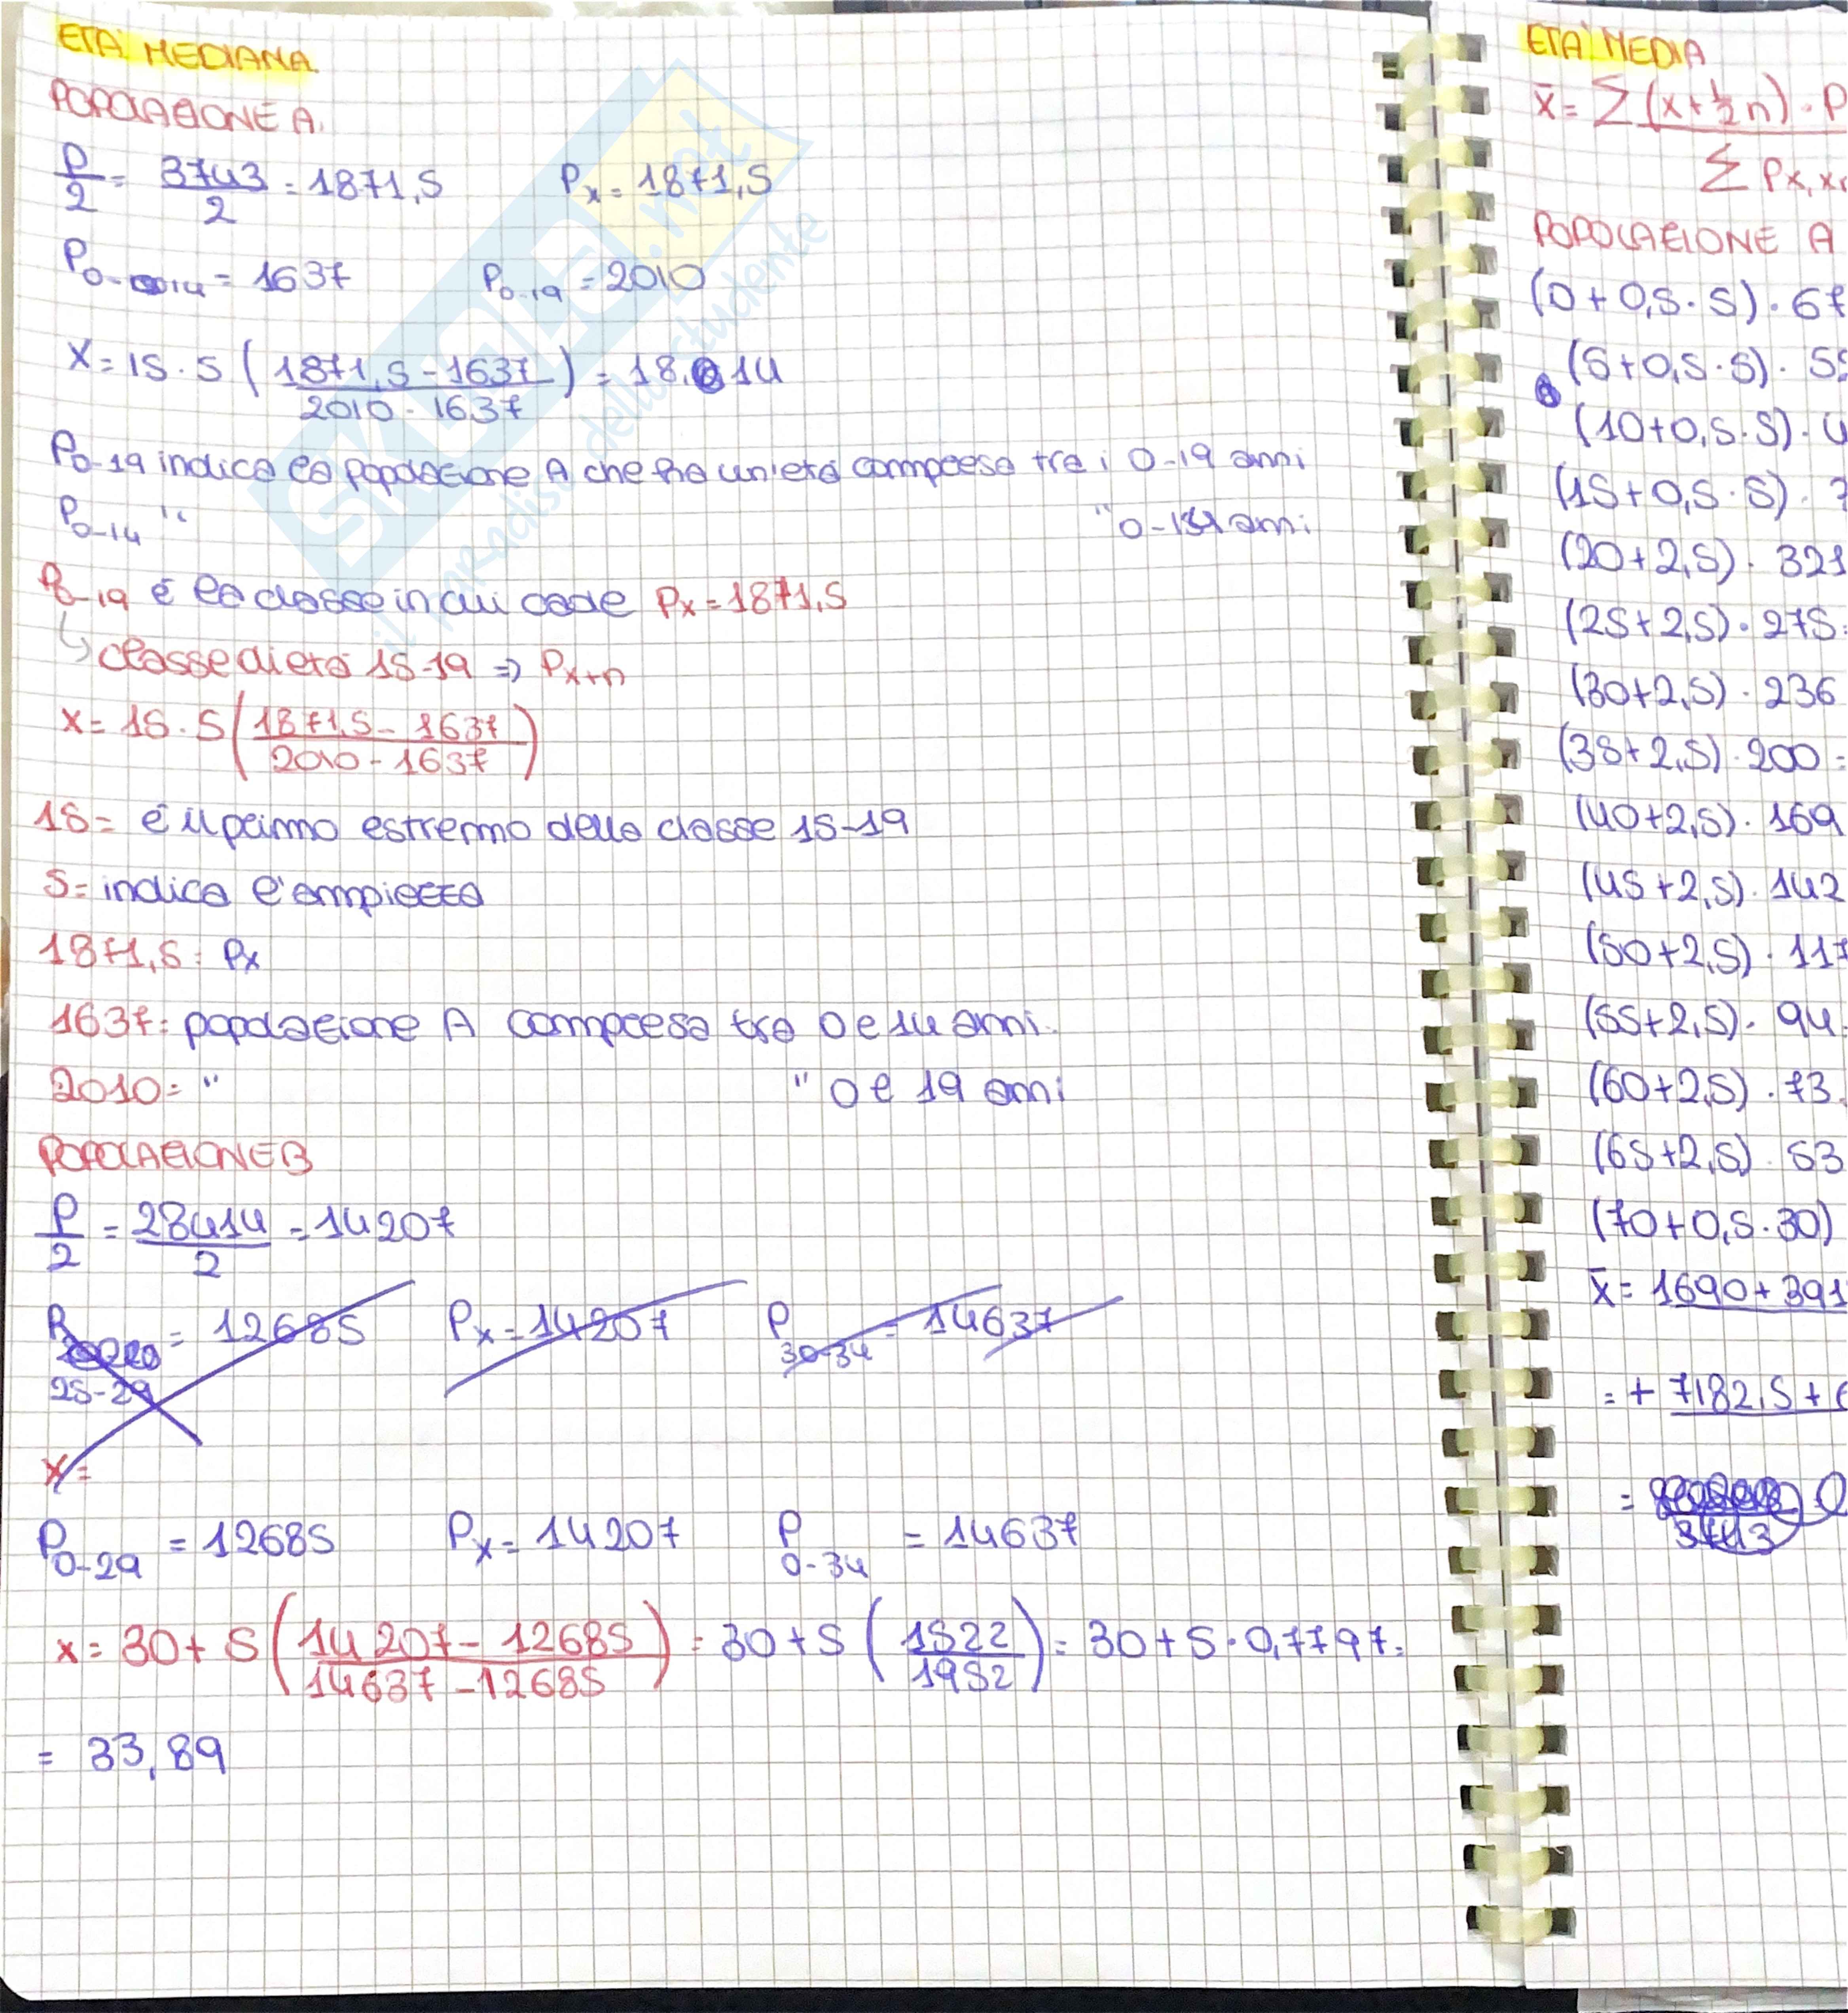 ETA' MEDIANA
POPOLAZIONE A.
P/2 = 3743/2 = 1871,5 Px = 1871,5
P0-14 = 1637 P0-19 = 2010
X = 15 · 5 (1871,5 - 1637 / 2010 - 1637) = 18,14
P0-19 indica la popolazione A che ha un'età compresa tra i 0-19 anni
P0-14 " " 0-14 anni
P0-19 è la classe in cui cade Px = 1871,5
↳ classe di età 15-19 ⇒ Px+n
X = 15 · 5 (1871,5 - 1637 / 2010 - 1637)
15 = è il primo estremo della classe 15-19
5 = indica l'ampiezza
1871,5 = Px
1637 = popolazione A compresa tra 0 e 14 anni.
2010 = " " 0 e 19 anni
POPOLAZIONE B
P/2 = 28414/2 = 14207
P 25-29 = 12685 Px = 14207 P 30-34 = 14637
X =
P0-29 = 12685 Px = 14207 P 0-34 = 14637
X = 30 + 5 (14207 - 12685 / 14637 - 12685) = 30 + 5 (1522 / 1952) = 30 + 5 · 0,7797 =
= 33,89
ETA' MEDIA
x̄ = Σ(x + ½ n) · P
Σ Px,x
POPOLAZIONE A
(0 + 0,5 · 5) · 67
(5 + 0,5 · 5) · 5
(10 + 0,5 · 5) · 4
(15 + 0,5 · 5) ·
(20 + 2,5) · 321
(25 + 2,5) · 275
(30 + 2,5) · 236
(35 + 2,5) · 200 =
(40 + 2,5) · 169
(45 + 2,5) · 142
(50 + 2,5) · 117
(55 + 2,5) · 94
(60 + 2,5) · 73
(65 + 2,5) · 53
(70 + 0,5 · 30)
x̄ = 1690 + 391
= + 7182,5 +
=
3743
SKUOLA.net
il paradiso dello studente